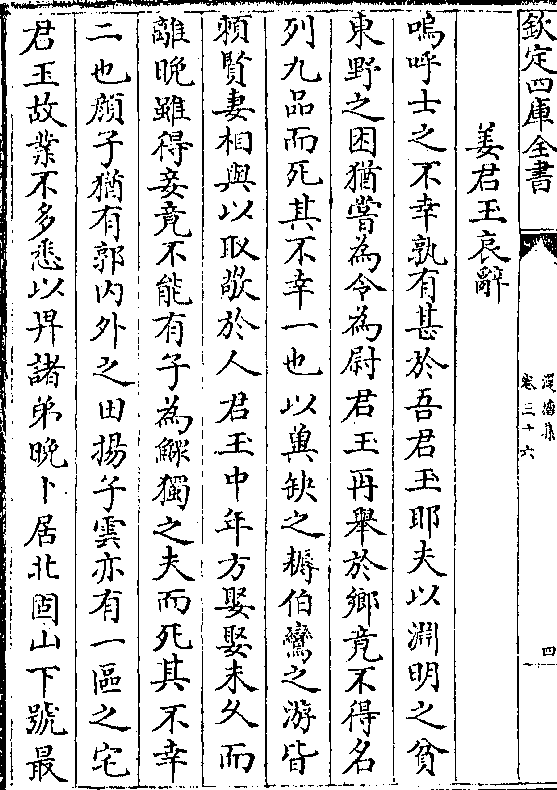 欽定四庫全書
漫塘集
卷三十六
四
姜君玉哀辭
嗚呼士之不幸孰有甚於吾君玉耶夫以淵明之貧
東野之困猶嘗為令為尉君玉再舉於鄉竟不得名
列九品而死其不幸一也以冀缺之耨伯鸞之游皆
賴賢妻相與以取敬於人君玉中年方娶娶未久而
離晚雖得妾竟不能有子為鰥獨之夫而死其不幸
二也顔子猶有郭内外之田揚子雲亦有一區之宅
君玉故業不多悉以畀諸弟晚卜居北固山下號最